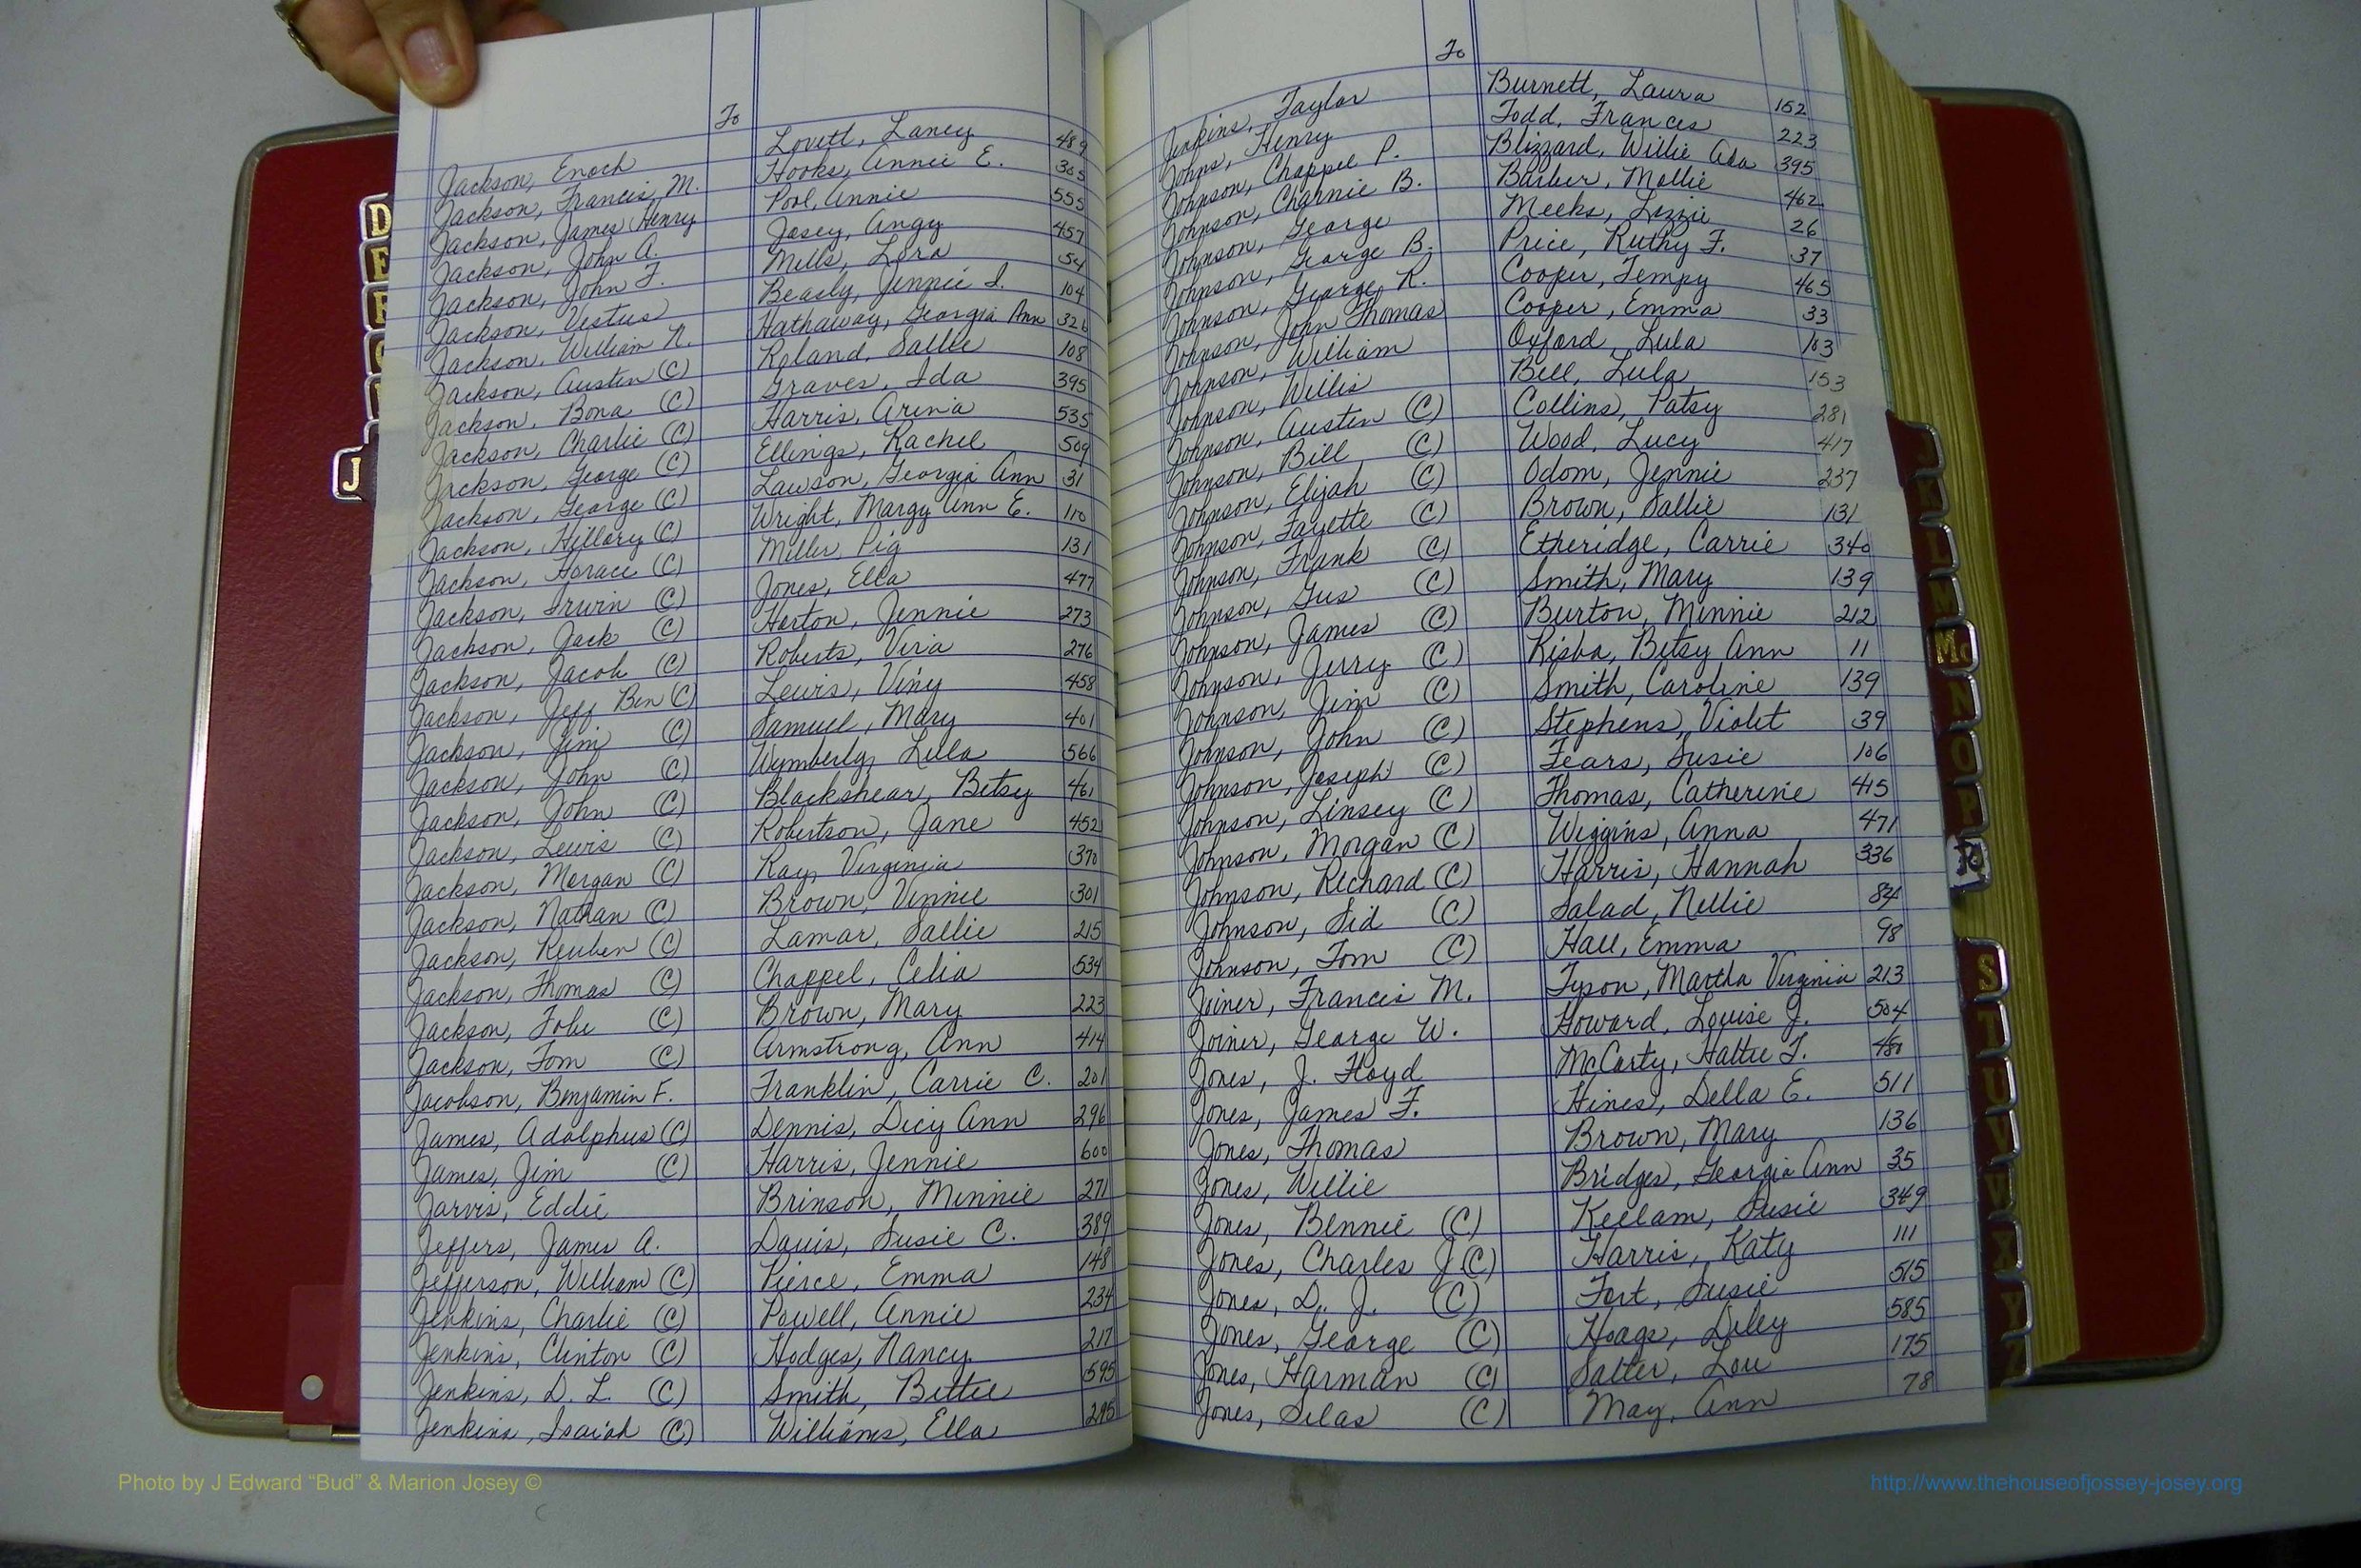 To
Jackson, Enoch Lovett, Laney 489
Jackson, Francis M. Hooks, Annie E. 305
Jackson, James Henry Pool, Annie 555
Jackson, John A. Josey, Angy 457
Jackson, John F. Mills, Lora 54
Jackson, Vestus Beasly, Jennie I. 104
Jackson, William N. Hathaway, Georgia Ann 326
Jackson, Austin (C) Roland, Sallie 108
Jackson, Bona (C) Graves, Ida 395
Jackson, Charlie (C) Harris, Arena 535
Jackson, George (C) Ellings, Rachel 509
Jackson, George (C) Lawson, Georgia Ann 31
Jackson, Hillary (C) Wright, Margy Ann E. 110
Jackson, Horace (C) Miller, Pig 131
Jackson, Irwin (C) Jones, Ella 477
Jackson, Jack (C) Horton, Jennie 273
Jackson, Jacob (C) Roberts, Viria 276
Jackson, Jeff Ben (C) Lewis, Viny 458
Jackson, Jim (C) Samuel, Mary 401
Jackson, John (C) Wymberly, Lula 566
Jackson, John (C) Blackshear, Betsy 461
Jackson, Lewis (C) Robertson, Jane 452
Jackson, Morgan (C) Ray, Virginia 370
Jackson, Nathan (C) Brown, Vinnie 301
Jackson, Reuben (C) Lamar, Sallie 215
Jackson, Thomas (C) Chappel, Celia 534
Jackson, Tobe (C) Brown, Mary 223
Jackson, Tom (C) Armstrong, Ann 414
Jacobson, Benjamin F. Franklin, Carrie C. 201
James, Adolphus (C) Dennis, Dicy Ann 296
James, Jim (C) Harris, Jennie 600
Jarvis, Eddie Brinson, Minnie 271
Jeffers, James A. Davis, Susie C. 389
Jefferson, William (C) Pierce, Emma 148
Jenkins, Charlie (C) Powell, Annie 234
Jenkins, Clinton (C) Hodges, Nancy 217
Jenkins, D. L. (C) Smith, Bettie 595
Jenkins, Isaiah (C) Williams, Ella 295
To
Jenkins, Taylor Burnett, Laura 152
Johns, Henry Todd, Frances 223
Johnson, Chappel P. Blizzard, Willie Ada 395
Johnson, Charnie B. Barber, Mollie 462
Johnson, George Meeks, Lizzie 26
Johnson, George B. Price, Ruthy F. 37
Johnson, George R. Cooper, Tempy 465
Johnson, John Thomas Cooper, Emma 33
Johnson, William Oxford, Lula 103
Johnson, Willis Bell, Lula 153
Johnson, Austin (C) Collins, Patsy 281
Johnson, Bill (C) Wood, Lucy 417
Johnson, Elijah (C) Odom, Jennie 237
Johnson, Fayette (C) Brown, Sallie 131
Johnson, Frank (C) Etheridge, Carrie 340
Johnson, Gus (C) Smith, Mary 139
Johnson, James (C) Burton, Minnie 212
Johnson, Jerry (C) Risba, Betsy Ann 11
Johnson, Jim (C) Smith, Caroline 139
Johnson, John (C) Stephens, Violet 39
Johnson, Joseph (C) Fears, Susie 106
Johnson, Linsey (C) Thomas, Catherine 415
Johnson, Morgan (C) Wiggins, Anna 471
Johnson, Richard (C) Harris, Hannah 336
Johnson, Sid (C) Salad, Nellie 84
Johnson, Tom (C) Hall, Emma 98
Joiner, Francis M. Tyson, Martha Virginia 213
Joiner, George W. Howard, Louise J. 504
Jones, J. Floyd McCarty, Hattie T. 480
Jones, James F. Hines, Della E. 511
Jones, Thomas Brown, Mary 136
Jones, Willie Bridges, Georgia Ann 35
Jones, Bennie (C) Keelam, Susie 349
Jones, Charles J (C) Harris, Katy 111
Jones, D. J. (C) Fort, Susie 515
Jones, George (C) Hoags, Diley 585
Jones, Harman (C) Salter, Lou 175
Jones, Silas (C) May, Ann 78
D
E
F
J
J
K
L
M
Mc
N
O
P
R
S
T
U
V
W
X
Y
Z
Photo by J Edward “Bud” & Marion Josey ©
http://www.thehouseofjossey-josey.org